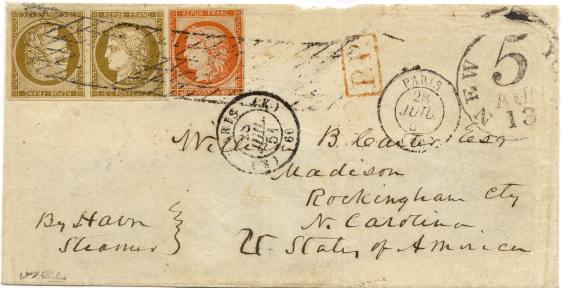 REPUB. FRANC. REPUB. FRANC. REPUB. FRANC.
10 C. POSTES 10 C.
P.P.
PARIS
28
JUIL.
NEW YO
5
AUG
13
PARIS (K)
28
JUIL.
51
(K) (60)
William B. Carter, Esq
Madison
Rockingham Cty
N. Carolina
States of America
By Havre
Steamer